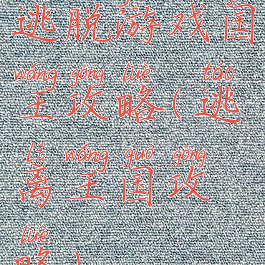 逃脱游戏国
wáng gōng lüè táo
王攻略(逃
lí wáng guó gōng
离王国攻
lüè
略)